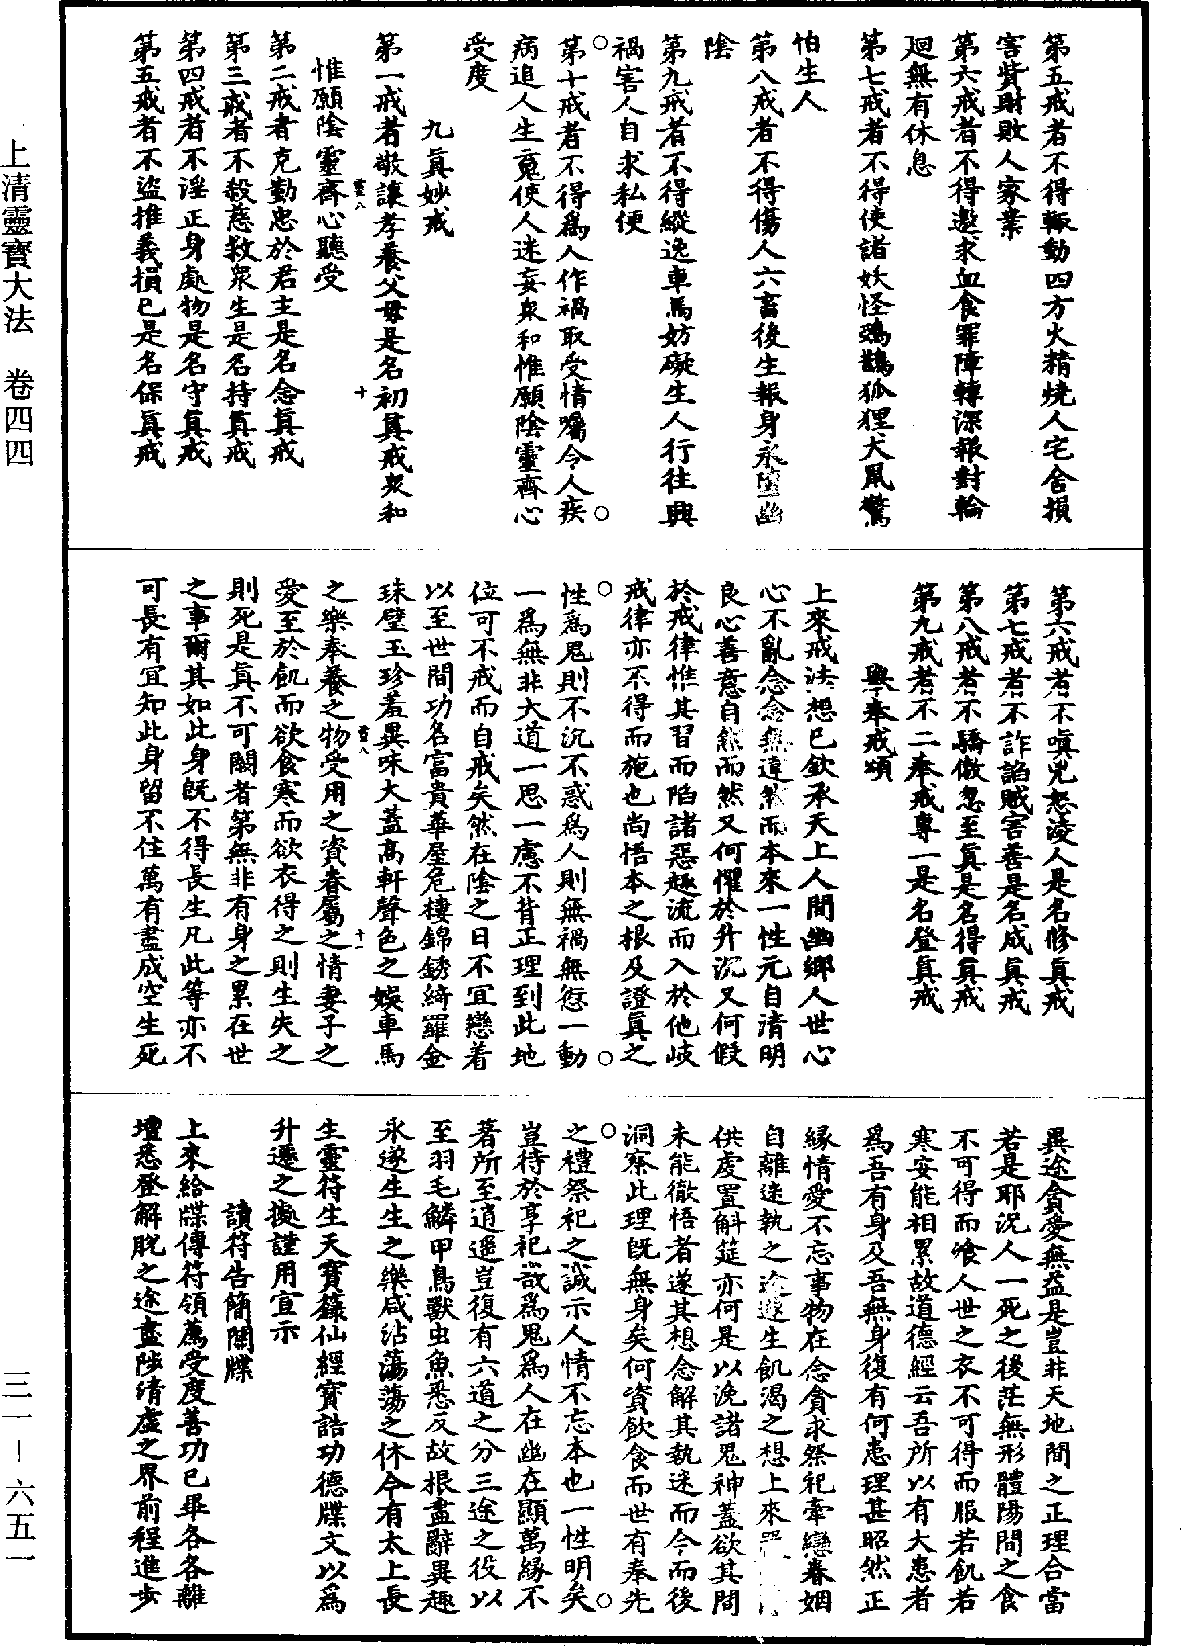 上清靈寶大法　卷四四
第五戒者不得輙動四方火精燒人宅舍損
害貲財敗人家業
第六戒者不得邀求血食罪障轉深報對輪
迴無有休息
第七戒者不得使諸妖怪鵶鵲狐狸犬鼠驚
怕生人
第八戒者不得傷人六畜後生報身永墮幽
陰
第九戒者不得縱逸車馬妨礙生人行往興
禍害人自求私便
第十戒者不得爲人作禍取受情囑令人疾
病追人生䰟使人迷妄衆和惟願陰靈齊心
受度
九真妙戒
第一戒者敬讓孝養父母是名初真戒衆和
惟願陰靈齊心聽受
第二戒者克勤忠於君主是名念真戒
第三戒者不殺慈救衆生是名持真戒
第四戒者不淫正身處物是名守真戒
第五戒者不盜推義損己是名保真戒
第六戒者不嗔兇怒淩人是名修真戒
第七戒者不詐諂賊害善是名成真戒
第八戒者不驕傲忽至真是名得真戒
第九戒者不二奉戒專一是名登真戒
舉奉戒頌
上來戒法想已欽承天上人間幽鄉人世心
心不亂念念無違然而本來一性元自清明
良心善意自然而然又何懼於升沉又何假
於戒律惟其習而陷諸惡趣流而入於他岐
戒律亦不得而施也尚悟本之根及證真之
性爲鬼則不沉不惑爲人則無禍無愆一動
一爲無非大道一思一慮不背正理到此地
位可不戒而自戒矣然在陰之日不宜戀着
以至世間功名富貴華屋危樓錦銹綺羅金
珠璧玉珍羞異味大蓋高軒聲色之娛車馬
之樂奉養之物受用之資眷屬之情妻子之
愛至於飢而欲食寒而欲衣得之則生失之
則死是真不可闕者第無非有身之累在世
之事爾其如此身旣不得長生凡此等亦不
可長有宜知此身留不住萬有盡成空生死
異途貪愛無益是豈非天地間之正理合當
若是耶況人一死之後茫無形體陽間之食
不可得而飡人世之衣不可得而服若飢若
寒安能相累故道德經云吾所以有大患者
爲吾有身及吾無身復有何患理甚昭然正
緣情愛不忘事物在念貪求祭祀牽戀眷姻
自離迷執之途遂生飢渴之想上來
供處置斛筵亦何是以浼諸鬼神蓋欲其間
未能徹悟者遂其想念解其執迷而今而後
洞察此理旣無身矣何資飲食而世有奉先
之禮祭祀之誠示人情不忘本也一性明矣
豈待於享祀哉爲鬼爲人在幽在顯萬緣不
著所至逍遥豈復有六道之分三途之役以
至羽毛鱗甲鳥獸虫魚悉反故根盡辭異趣
永遂生生之樂咸沾蕩蕩之休今有太上長
生靈符生天寶籙仙經寶誥功德牒文以爲
升遷之擬謹用宣示
讀符告簡關牒
上來給牒傳符領薦受度善功已畢各各離
壇悉登解脫之途盡陟清虛之界前程進步
三一－六五一